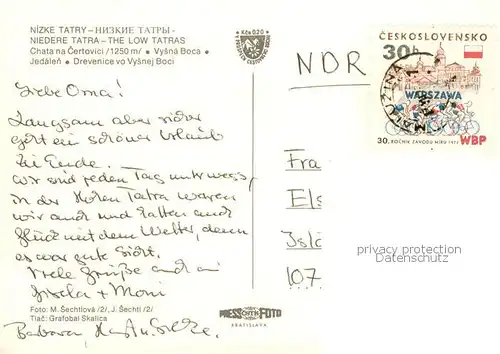 NÍZKE TATRY – НИЗКИЕ ТАТРЫ -
NIEDERE TATRA – THE LOW TATRAS
Chata na Čertovici /1250 m/ • Vyšná Boca •
Jedáleň • Drevenice vo Vyšnej Boci
Kčs 0,20
ČESKOSLOVENSKO
30h
WARSZAWA
30. ROČNÍK ZÁVODU MÍRU 1977 WBP
NDR
Liebe Oma!
Langsam aber sicher
geht ein schöner Urlaub
zu Ende.
Wir sind jeden Tag unterwegs,
in der Hohen Tatra waren
wir auch und hatten auch
Glück mit dem Wetter, denn
es war gute Sicht.
Viele Grüße auch an
Gisela + Moni
Fra
Els
Islä
107
privacy protection
Foto: M. Šechtlová /2/, J. Šechtl /2/
Tlač: Grafobal Skalica
PRESSFOTO
BRATISLAVA
Barbara